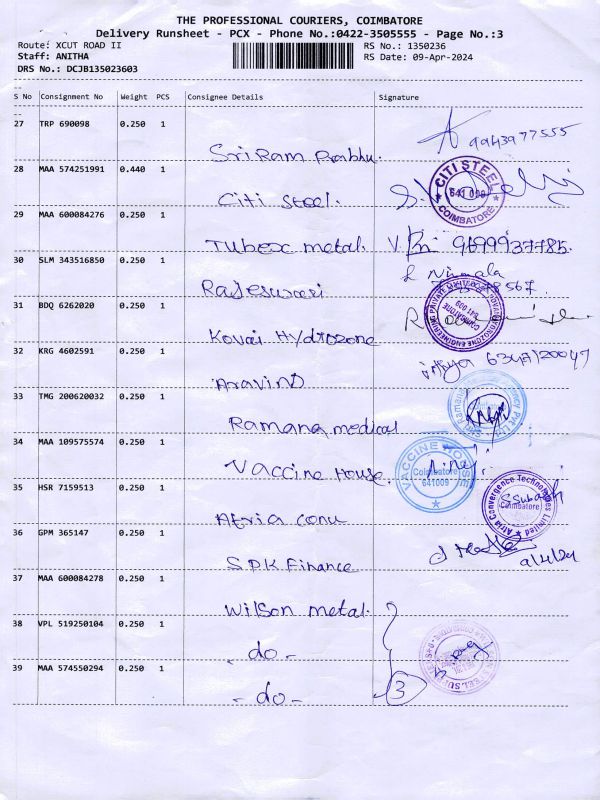 THE PROFESSIONAL COURIERS, COIMBATORE
Delivery Runsheet - PCX - Phone No.:0422-3505555 - Page No.:3
Route: XCUT ROAD II
RS No.: 1350236
Staff: ANITHA
RS Date: 09-Apr-2024
DRS No.: DCJB135023603
S No Consignment No Weight PCS Consignee Details Signature
27 TRP 690098 0.250 1
9943977555
Sri Ram Prabhu.
28 MAA 574251991 0.440 1
CITI STEEL
641 009
COIMBATORE
Citi Steel.
29 MAA 600084276 0.250 1
Tubex metal. 9699937785.
30 SLM 343516850 0.250 1
Nirmala
Rajeswari
31 BDQ 6262020 0.250 1
COIMBATORE
641 009
Kovai Hydrozone
32 KRG 4602591 0.250 1
Aravind
33 TMG 200620032 0.250 1
Ramana medical
34 MAA 109575574 0.250 1
VACCINE HOUSE
Coimbatore
641009
Vaccine House.
35 HSR 7159513 0.250 1
Atria Convergence Technologies Limited
(Coimbatore)
Atria conv
36 GPM 365147 0.250 1
SPK Finance
9/4/24
37 MAA 600084278 0.250 1
Wilson metal.
38 VPL 519250104 0.250 1
- do -
39 MAA 574550294 0.250 1
- do - 3